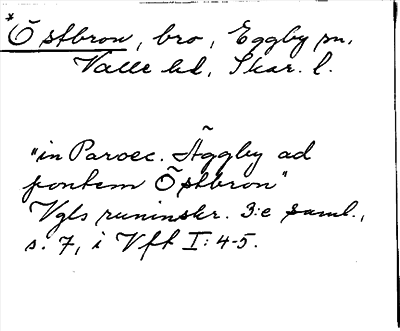 *Õstbron, bro, Eggby sn.
Valle hd, Skar. l.
"in Paroec. Ãggby ad
pontem Õstbron"
Vgls runinskr. 3:e saml.,
s. 7, i Vft I: 4-5.